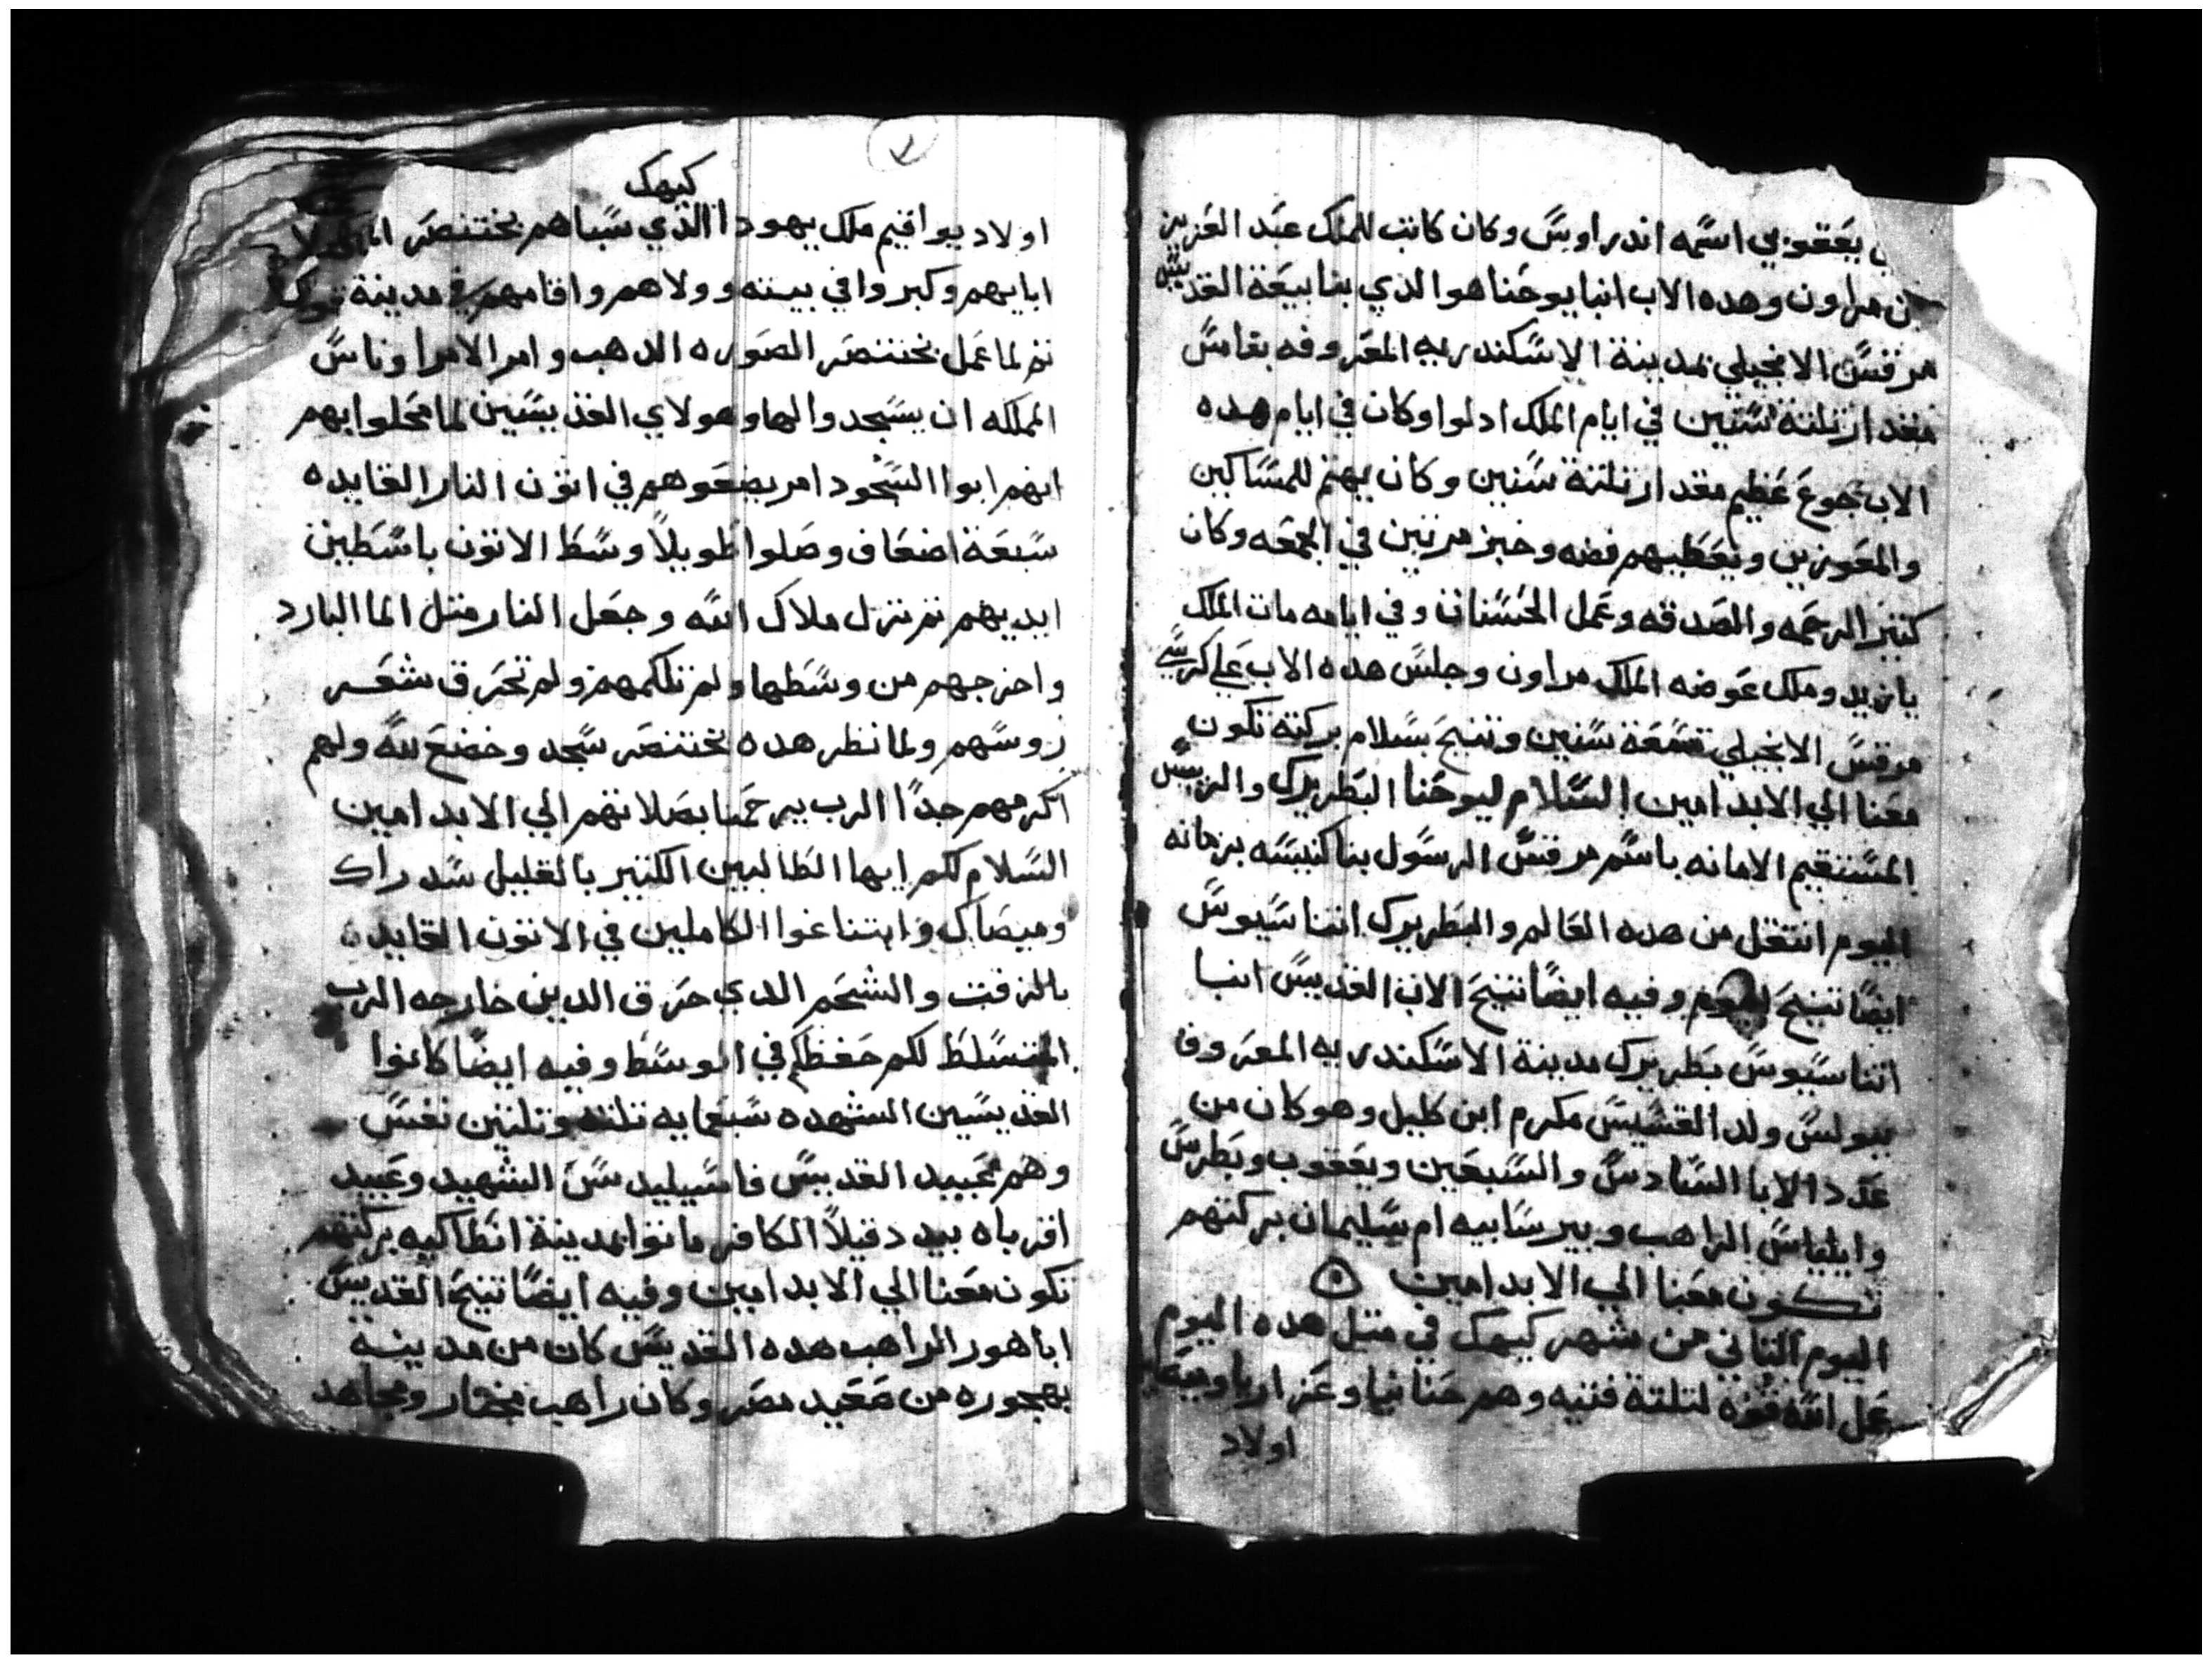 يعقوبي اسمه اندراوس وكان كاتب للملك عبد العزيز
بن مراون وهده الاب انبا يوحنا هو الدي بنا بيعة القديس
مرقس الانجيلي بمدينة الاسكندريه المعروفه بقاس
مقدار تلتة سنين في ايام الملك ادلوا وكان في ايام هده
الاب جوع عظيم مقدار تلتة سنين وكان يهتم للمساكين
والمعوزين ويعطيهم فضه وخبز مرتين في الجمعه وكان
كتير الرحمه والصدقه وعمل الحسنات وفي ايامه مات الملك
يازيد وملك عوضه الملك مراون وجلس هده الاب علي كرسي
مرقس الانجيلي تسعة سنين وتنيح بسلام بركته تكون
معنا الي الابد امين السلام ليوحنا البطريرك والرييس
المستقيم الامانه باسم مرقس الرسول بنا كنيسه بزمانه
اليوم انتقل من هده العالم والبطريرك اتناسيوس
ايضا تنيح اليوم وفيه ايضا تنيح الاب القديس انبا
اتناسيوس بطريرك مدينة الاسكندريه المعروف
ببولس ولد القسيس مكرم ابن كليل وهو كان من
عدد الابا السادس والسبعين ويعقوب وبطرس
وايلياس الراهب وبيرسابيه ام سليمان بركتهم
تكون معنا الي الابد امين
اليوم التاني من شهر كيهك في متل هده اليوم
عمل الله قوه لتلتة فتيه وهم حنانيا وعزاريا
اولاد
كيهك
اولاد يواقيم ملك يهودا الذي سباهم بختنصر
ابايهم وكبروا في بيته وولاهم واقامهم في مدينة
تم لما عمل بختنصر الصوره الدهب وامر الامرا وناس
المملكه ان يسجدوا لها وهولاي القديسين لما محلوا بهم
انهم ابوا السجود امر يضعوهم في اتون النار القايده
سبعة اضعاف وصلوا طويلا وسط الاتون باسطين
ايديهم تم نزل ملاك الله وجعل النار متل الما البارد
واخرجهم من وسطها ولم تلكمهم ولم تحرق شعر
روسهم ولما نظر هده بختنصر سجد وخضع لله ولهم
اكرمهم جدا الرب يرحمنا بصلاتهم الي الابد امين
السلام لكم ايها الطالبين الكتير بالقليل سدراك
وميصاك وابتناغوا الكاملين في الاتون القايده
بالزفت والشحم الدي حرق الدين خارجه الرب
المتسلط لكم حفظكم في الوسط وفيه ايضا كانوا
القديسين الشهده سبعمايه تلته وتلتين نفس
وهم عبيد القديس فاسيليدس الشهيد وعبيد
اقرباه بيد دقيلا الكافر ماتوا بمدينة انطاكيه بركتهم
تكون معنا الي الابد امين وفيه ايضا تنيح القديس
اباهور الراهب هده القديس كان من مدينة
بهجوره من صعيد مصر وكان راهب مختار ومجاهد